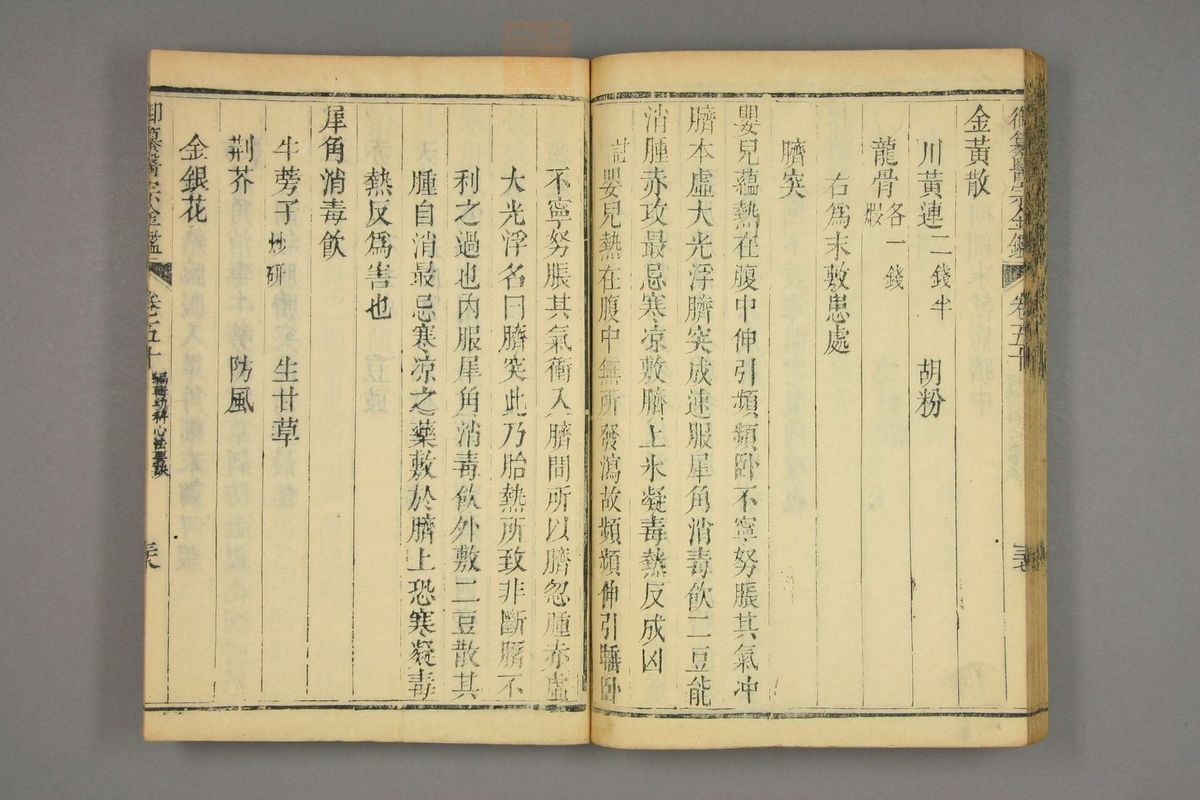 御纂醫宗金鑑 卷五十
金黃散
川黃連二錢半 胡粉
龍骨煅各一錢
右爲末敷患處
臍突
嬰兒蘊熱在腹中伸引頻頻臥不寧努脹其氣冲
臍本虛大光浮臍突成速服犀角消毒飲二豆能
消腫赤攻最忌寒凉敷臍上氷凝毒熱反成凶
註嬰兒熱在腹中無所發瀉故頻頻伸引睡臥
不寧努脹其氣衝入臍間所以臍忽腫赤虛
大光浮名曰臍突此乃胎熱所致非斷臍不
利之過也內服犀角消毒飲外敷二豆散其
腫自消最忌寒凉之藥敷於臍上恐寒凝毒
熱反爲害也
犀角消毒飲
牛蒡子炒研 生甘草
荆芥 防風
金銀花
御纂醫宗金鑑 卷五十 編輯幼科心法要訣 三六